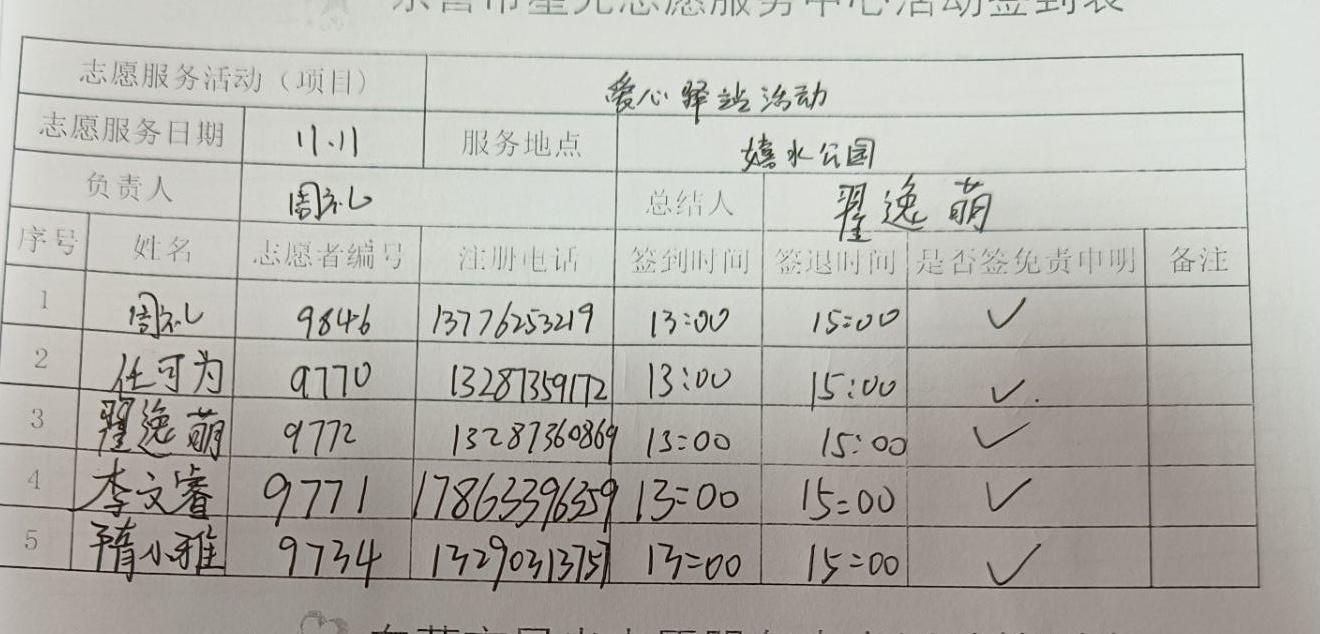 东营市星光志愿服务中心活动签到表
志愿服务活动（项目） 爱心驿站活动
志愿服务日期 11.11 服务地点 嬉水公园
负责人 周礼 总结人 翟逸萌
序号 姓名 志愿者编号 注册电话 签到时间 签退时间 是否签免责申明 备注
1 周礼 9846 13776253219 13:00 15:00 ✓
2 任可为 9770 13287359172 13:00 15:00 ✓
3 翟逸萌 9772 13287360869 13:00 15:00 ✓
4 李文睿 9771 17863396359 13:00 15:00 ✓
5 隋小雅 9734 13290313757 13:00 15:00 ✓